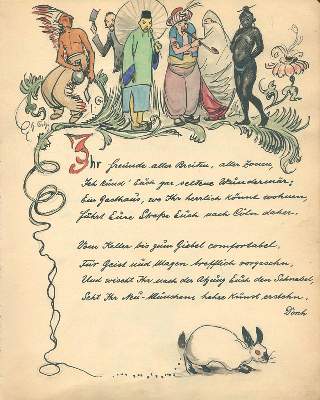 Ihr Freunde aller Breiten, aller Zonen,
Ich künd' Euch gar seltene Wundermär;
Ein Gasthaus, wo Ihr herrlich könnt wohnen,
Führt Eure Straße Euch nach Cöln daher.
Vom Keller bis zum Giebel comfortabel
Für Geist und Magen trefflich vorgesehn,
Und wischt Ihr nach der Atzung Euch den Schnabel,
Seht Ihr Neu-Münchens hohe Kunst erstehn.